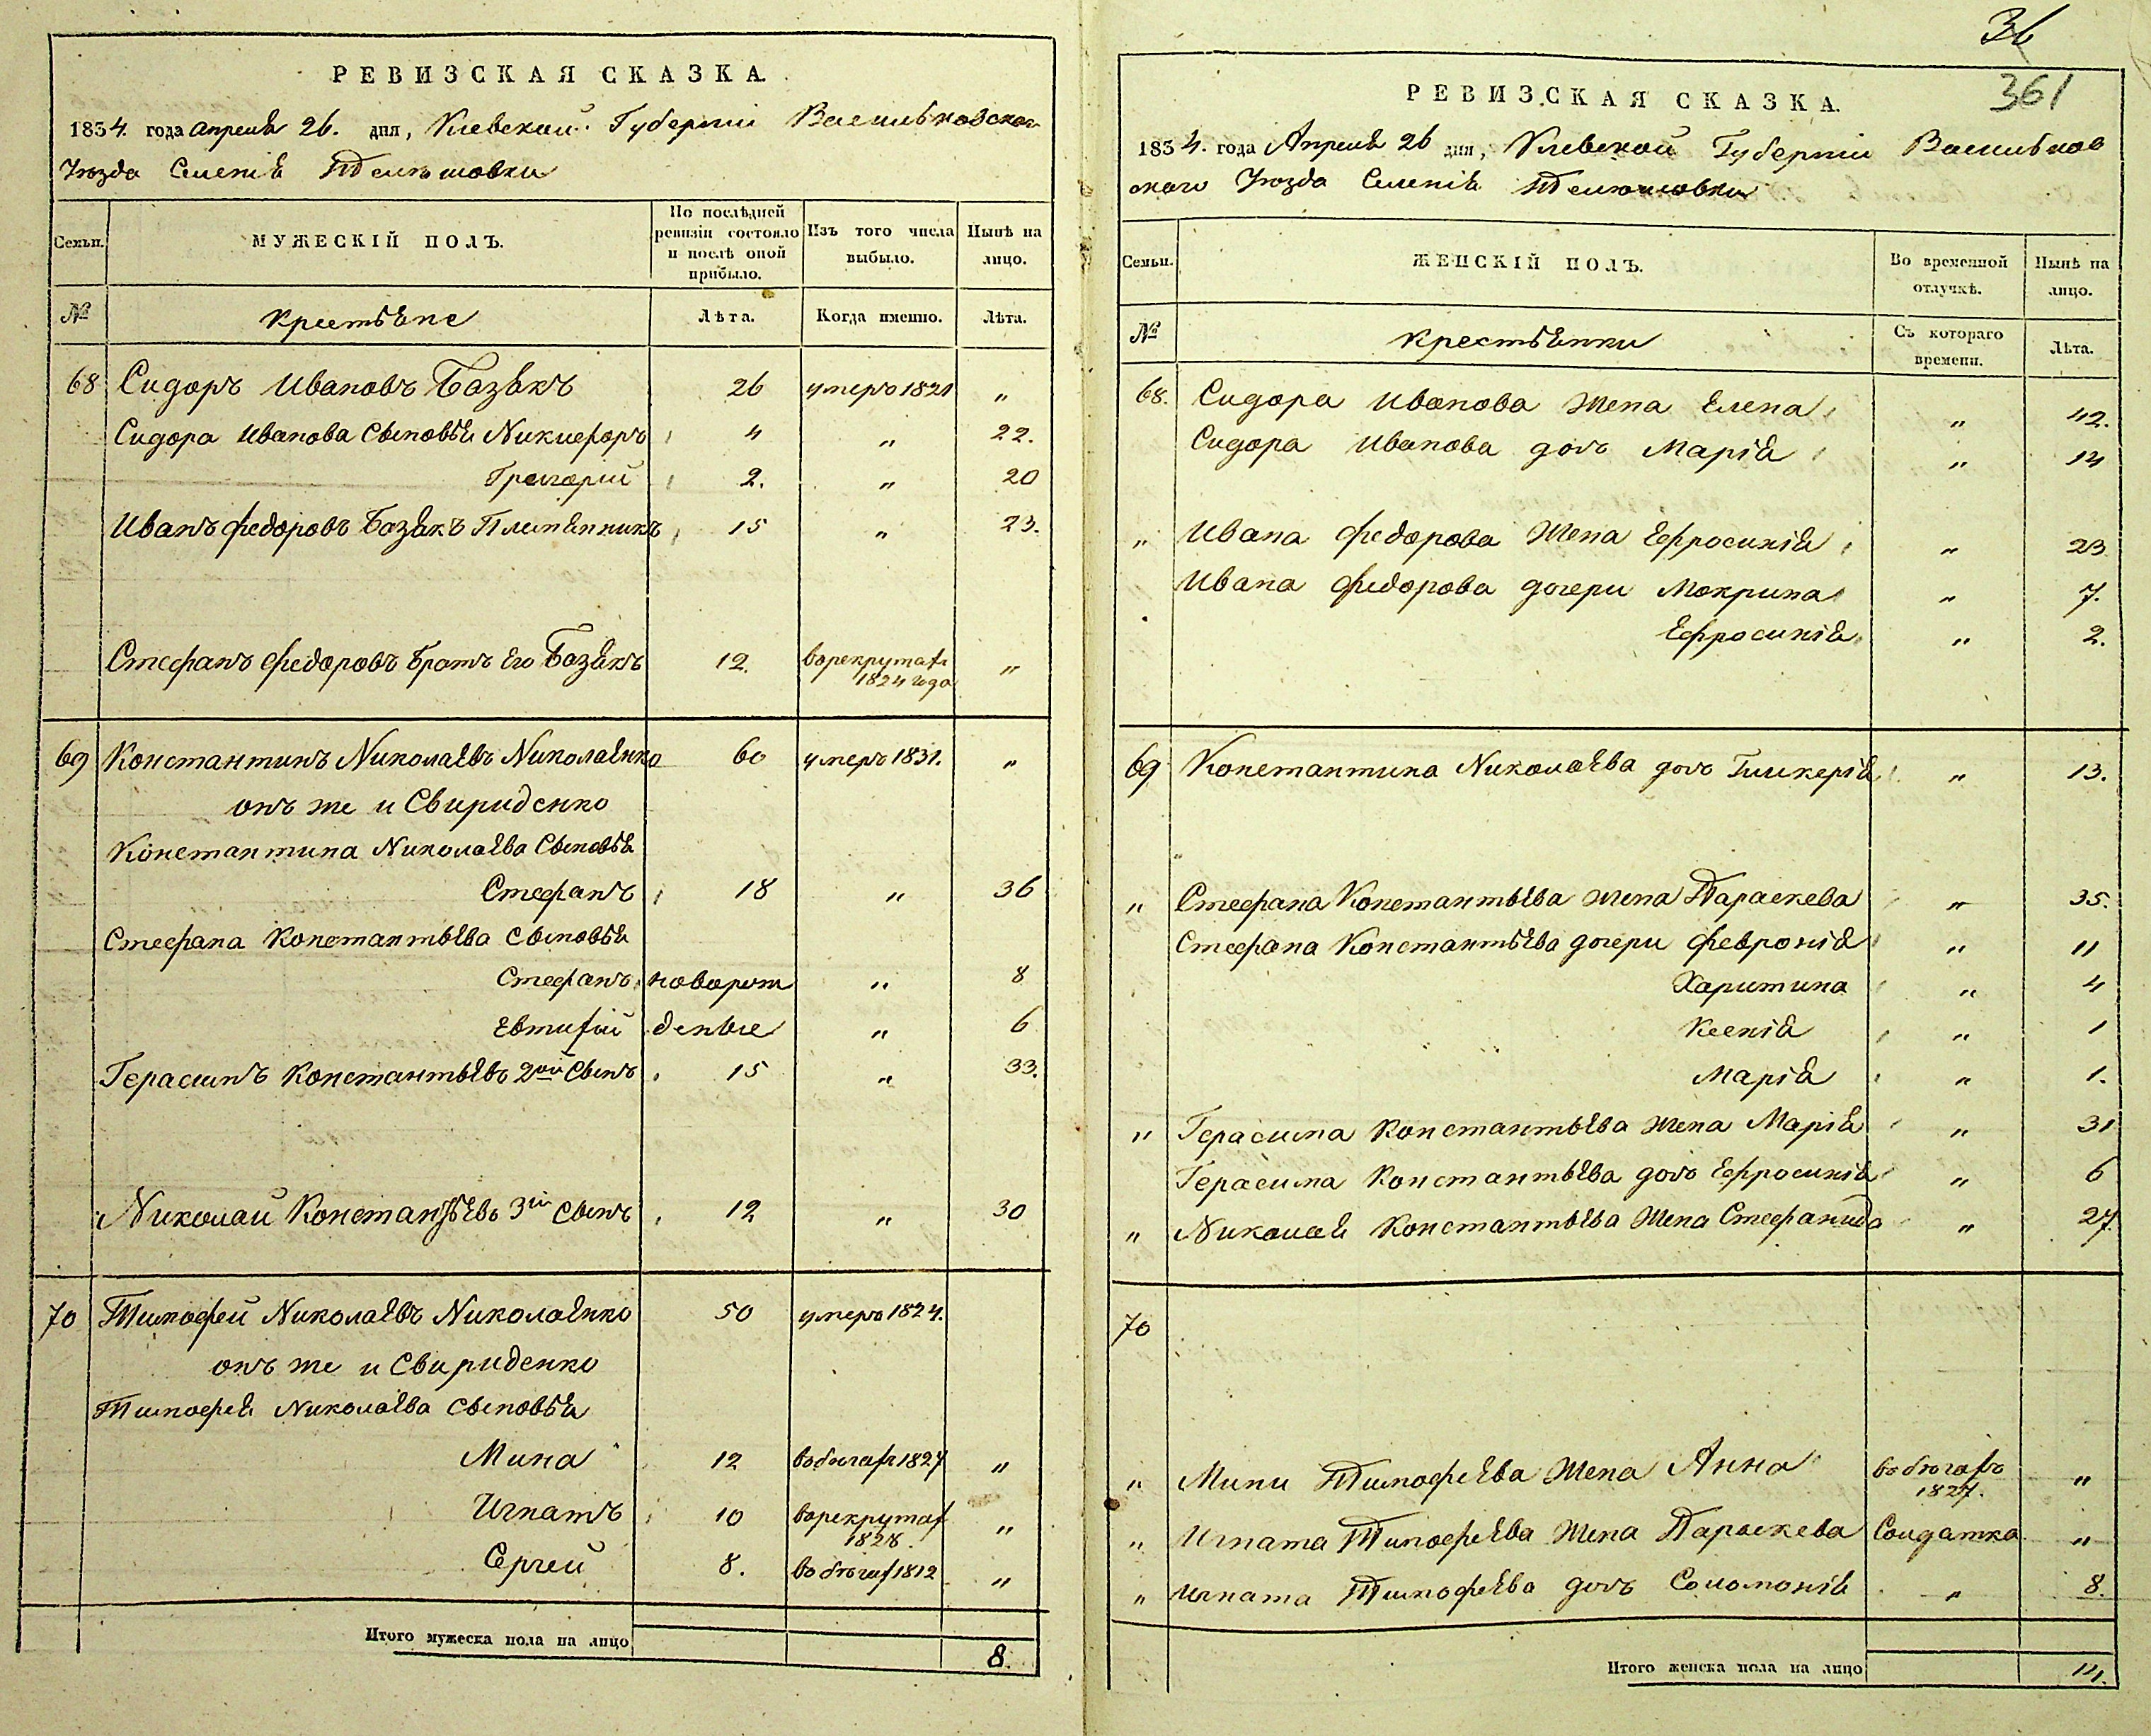 РЕВИЗСКАЯ СКАЗКА.
1834. года Апреля 26. дня, Киевской Губернии Васильковскаго
Уѣзда Селенія
Семьи.
МУЖЕСКІЙ ПОЛЪ.
По послѣдней ревизіи состояло и послѣ оной прибыло.
Изъ того числа выбыло.
Нынѣ на лицо.
№
Крестьяне
Лѣта.
Когда именно.
Лѣта.
68 Сидоръ Ивановъ Базякъ 26 умеръ 1821 "
Сидора Иванова Сыновья Никифоръ 4 " 22.
Григорий 2. " 20
Иванъ Федоровъ Базякъ Племянникъ 15 " 23.
Стефанъ Федоровъ братъ его Базякъ 12. въ рекрутах 1824 года "
69 Константинъ Николаевъ Николаенко 60 умеръ 1831. "
онъ же и Свириденко
Константина Николаева Сыновья
Стефанъ 18 " 36
Стефана Константьева Сыновья
Стефанъ новорож " 8
Евтифій деные " 6
Герасимъ Константьевъ 2ой Сынъ 15 " 33.
Николай Константьевъ 3й Сынъ 12 " 30
70 Тимофей Николаевъ Николаенко 50 умеръ 1824.
онъ же и Свириденко
Тимофея Николаева Сыновья
Мина 12 въ бѣгах 1827 "
Игнатъ 10 въ рекрутах 1828. "
Сергей 8. въ бѣгах 1812 "
Итого мужеска пола на лицо 8.
36
361
РЕВИЗСКАЯ СКАЗКА.
1834. года Апреля 26 дня, Киевской Губернии Васильков
скаго Уѣзда Селенія
Семьи.
ЖЕНСКІЙ ПОЛЪ.
Во временной отлучкѣ.
Нынѣ на лицо.
№
Крестьянки
Съ котораго времени.
Лѣта.
68. Сидора Иванова жена Елена " 42.
Сидора Иванова дочь Марія " 14
" Ивана Федорова жена Ефросинія " 23
Ивана Федорова дочери Мокрина " 7.
Ефросинія " 2.
69 Константина Николаева дочь Гликерія " 13.
" Стефана Константьева жена Параскева " 35.
Стефана Константьева дочери Февронія " 11
Харитина " 4
Ксенія " 1
Марія " 1.
" Герасима Константьева жена Марія " 31
Герасима Константьева дочь Ефросинія " 6
" Николая Константьева жена Стефанида " 27
70
" Мины Тимофеева жена Анна въ бѣгахъ 1827. "
" Игната Тимофеева жена Параскева Солдатка "
" Игната Тимофеева дочь Соломонія " 8.
Итого женска пола на лицо 14.